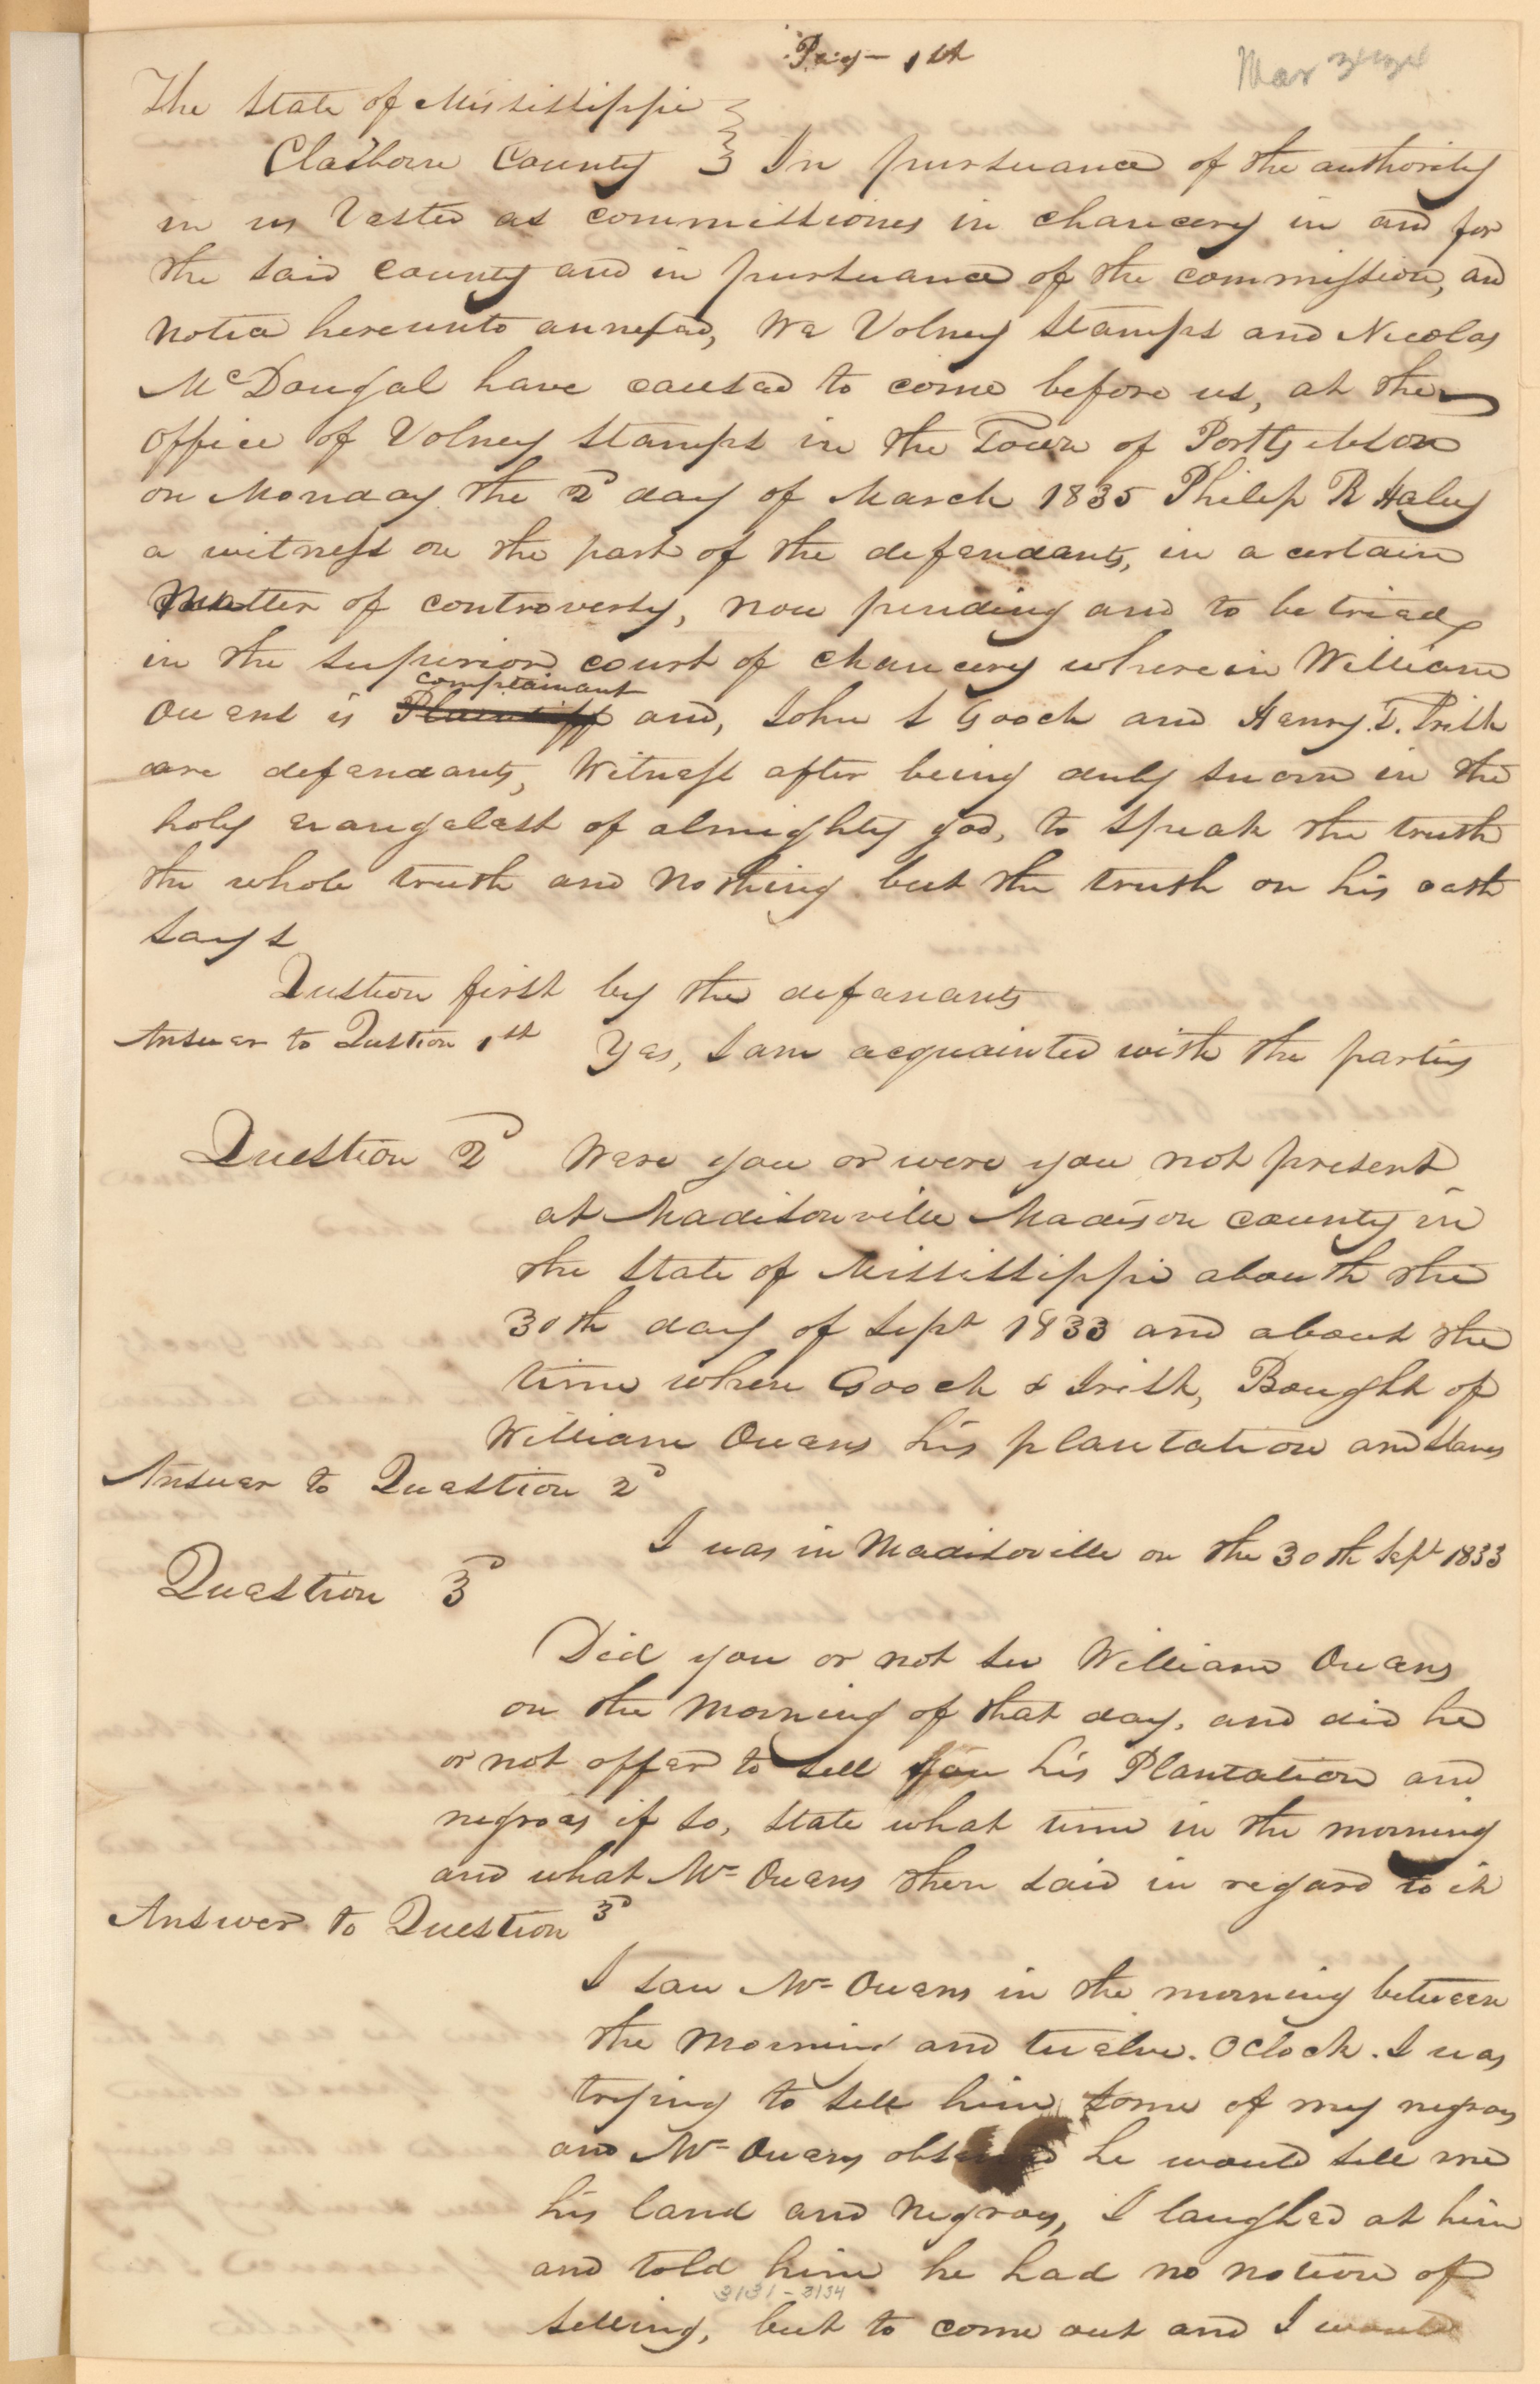 Page 1st
The State of Mississippi }
Claiborne County } In pursuance of the authority
in us Vested as commissiones in chancery in and for
the said county and in pursuance of the commission, and
notice hereunto annexed, We Volney Stamps and Nicolas
McDougal have caused to come before us, at the
office of Volney Stamps in the Town of Port Gibson
on Monday the 2d day of March 1835 Philip R Haley
a witness on the part of the defendants, in a certain
Matter of controversy, now pending and to be tried
in the superior court of chancery wherein William
complainant
Owens is Plaintiff and, John S Gooch and Henry T. Irish
are defendants, Witness after being duly sworn in the
holy evangelest of almighty god, to speak the truth
the whole truth and nothing but the truth on his oath
says
Qustion first by the defenants
Answer to Qustion 1st Yes, I am acquainted with the parties
Question 2d Were you or were you not present
at Madisonville Madison county in
the State of Mississippi abouth the
30th day of Sept 1833 and about the
time when Gooch & Irish, Bought of
William Owens his plantation and slaves
Answer to Question 2d
I was in Madisoville on the 30th Sept 1833
Question 3d
Did you or not see William Owens
on the morning of that day, and did he
or not offer to sell you his Plantation and
negroes if so, state what time in the morning
and what Mr Owens then said in regard to it
Answer to Question 3d
I saw Mr Owens in the morning between
the morning and twelve. OClock. I was
trying to sell him some of my negroes
and Mr Owens observed he would sell me
his land and negroes, I laughed at him
and told him he had no notion of
3131-3134
selling, but to come out and I would